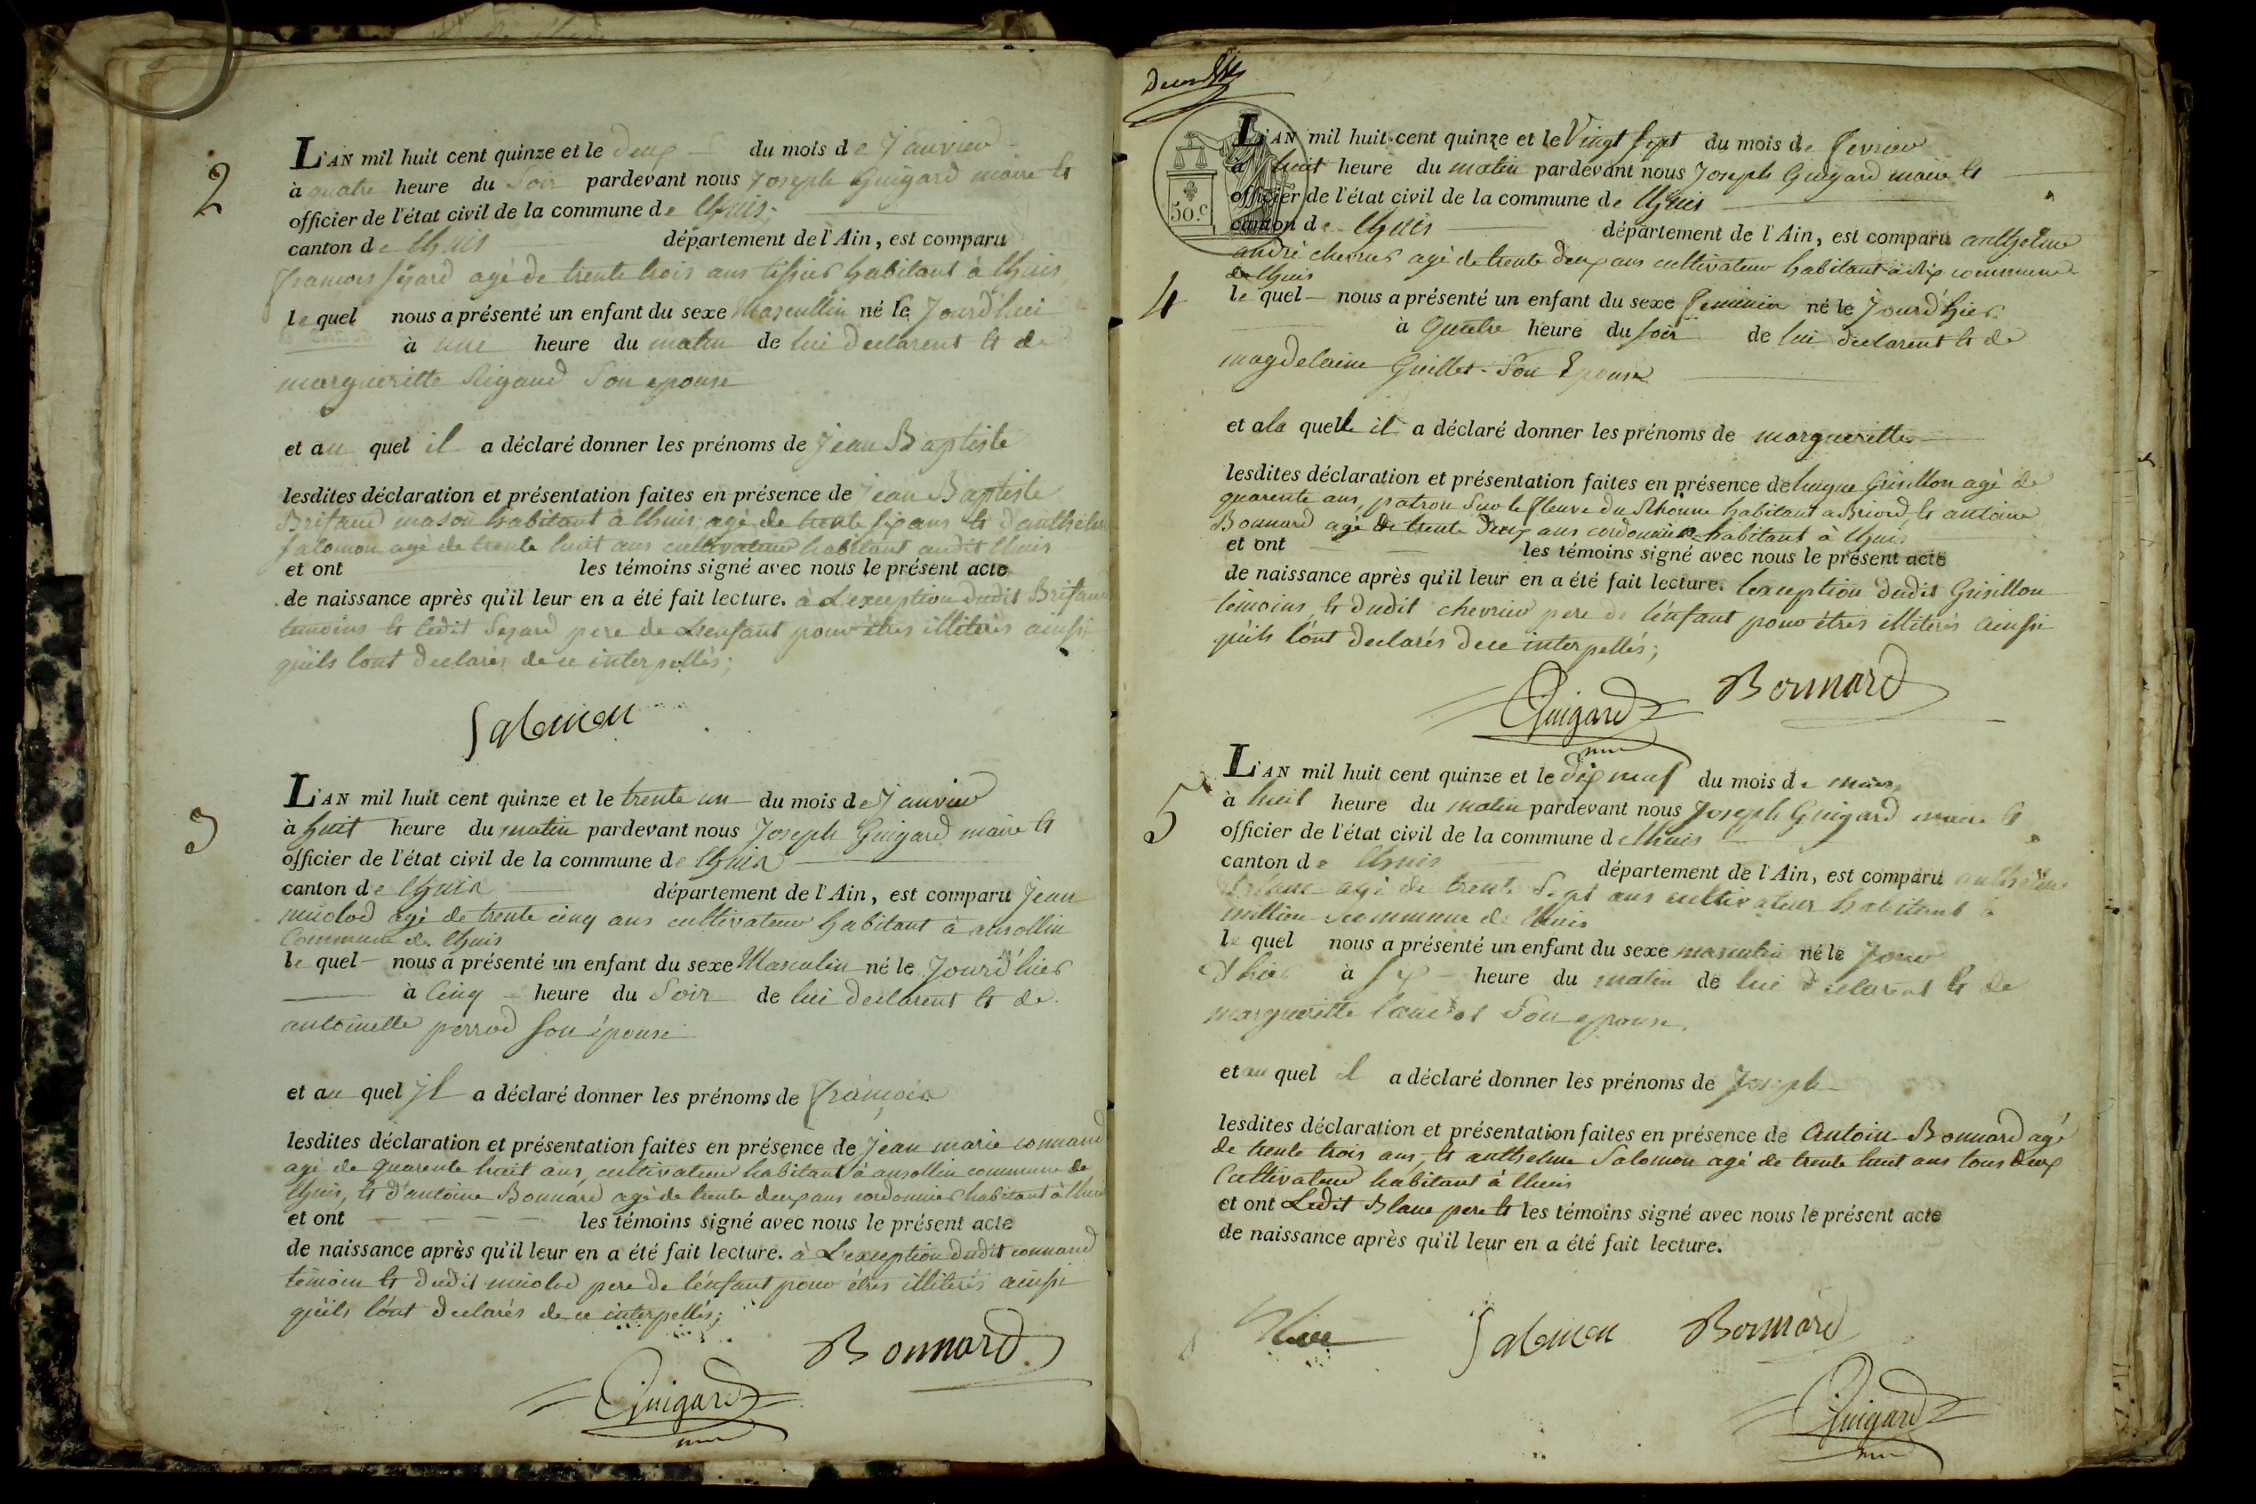 2
L'AN mil huit cent quinze et le deux du mois de Janvier
à quatre heure du Soir pardevant nous Joseph Guigard maire et
officier de l'état civil de la commune de Lhuis
canton de Lhuis département de l'Ain, est comparu
françois agé de trente trois ans tissier habitant à Lhuis
le quel nous a présenté un enfant du sexe Mascullin né le Jourd'hui
à une heure du matin de lui declarent et de
margueritte Rigaud Son epouse
et au quel il a déclaré donner les prénoms de Jean Baptiste
lesdites déclaration et présentation faites en présence de Jean Baptiste
Brifaud mason habitant à Lhuis, agé de trente six ans et d'anthelme
Salomon agé de trente huit ans cultivateur habitant audit Lhuis
et ont les témoins signé avec nous le présent acte
de naissance après qu'il leur en a été fait lecture. à L'exception dudit Brifaud
temoins et ledit pere de L'enfant pour êtres illiterés ainsi
qu'ils lont declarés de ce interpellés;
Salomon
3
L'AN mil huit cent quinze et le trente un du mois de Janvier
à huit heure du matin pardevant nous Joseph Guigard maire et
officier de l'état civil de la commune de Lhuis
canton de Lhuis département de l'Ain, est comparu Jean
agé de trente cinq ans cultivateur habitant à ansollin
Commune de Lhuis
le quel nous a présenté un enfant du sexe Masculin né le Jourd'hier
à Cinq heure du Soir de lui declarent et de
antoinette perrod son épouse
et au quel jl a déclaré donner les prénoms de françois
lesdites déclaration et présentation faites en présence de Jean marie connand
agé de quarente huit ans, cultivateur habitant à ansollin commune de
Lhuis, et d'antoine Bonnard agé de trente deux ans cordonnier habitant à Lhuis
et ont les témoins signé avec nous le présent acte
de naissance après qu'il leur en a été fait lecture. à L'exception dudit connand
témoin et dudit pere de l'enfant pour êtres illiterés ainsi
qu'ils l'ont declarés de ce interpellés;
Bonnard
Guigard
50.c
4
L'AN mil huit cent quinze et le Vingt Sept du mois de fevrier
à huit heure du matin pardevant nous Joseph Guigard maire et
officier de l'état civil de la commune de Lhuis
canton de Lhuis département de l'Ain, est comparu anthelme
andré chevrier agé de trente deux ans cultivateur habitant à Rix commune
de Lhuis
le quel nous a présenté un enfant du sexe feminin né le Jourd'hier
à Quatre heure du soir de lui declarent et de
magdelaine Guillet Son Epouse
et a la quelle il a déclaré donner les prénoms de margueritte
lesdites déclaration et présentation faites en présence de hugue Grisillon agé de
quarente ans, patron Sur le fleuve du Rhonne habitant a Briord, et antoine
Bonnard agé de trente deux ans cordonnier habitant à Lhuis
et ont les témoins signé avec nous le présent acte
de naissance après qu'il leur en a été fait lecture. lexception dudit Grisillon
témoins et dudit chevrier pere de l'enfant pour êtres illiterés ainsi
qu'ils l'ont declarés de ce interpellés;
Guigard Bonnard
5
L'AN mil huit cent quinze et le dix neuf du mois de mars
à huit heure du matin pardevant nous Joseph Guigard maire et
officier de l'état civil de la commune de Lhuis
canton de Lhuis département de l'Ain, est comparu anthelme
Blanc agé de trente Sept ans cultivateur habitant à
millieu commune de Lhuis
le quel nous a présenté un enfant du sexe masculin né le Jour
d'hier à Six heure du matin de lui declarent et de
margueritte Son epouse.
et au quel il a déclaré donner les prénoms de Joseph
lesdites déclaration et présentation faites en présence de Antoine Bonnard agé
de trente trois ans, et anthelme Salomon agé de trente huit ans tous deux
Cultivateur habitant à Lhuis
et ont Ledit Blanc pere et les témoins signé avec nous le présent acte
de naissance après qu'il leur en a été fait lecture.
Salomon Bonnard
Guigard